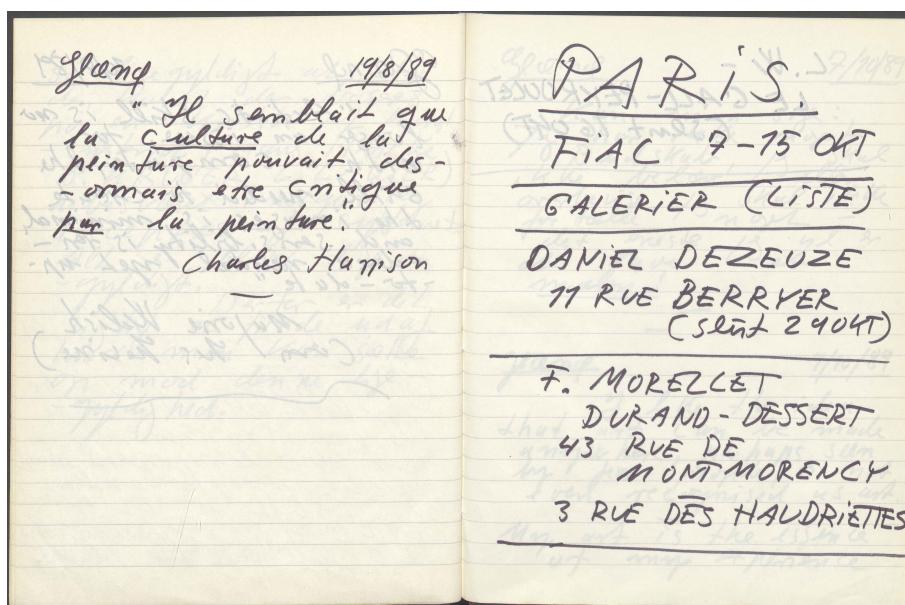 Gland 19/8/89
"Il semblait que
la culture de la
peinture pouvait des-
-ormais etre critique
par la peinture."
Charles Harrison
PARiS.
FiAC 7-15 OKT
GALERiER (LiSTE)
DANiEL DEZEUZE
11 RUE BERRYER
(slut 29 OKT)
F. MORELLET
DURAND-DESSERT
43 RUE DE
MONTMORENCY
3 RUE DES HAUDRiETTES